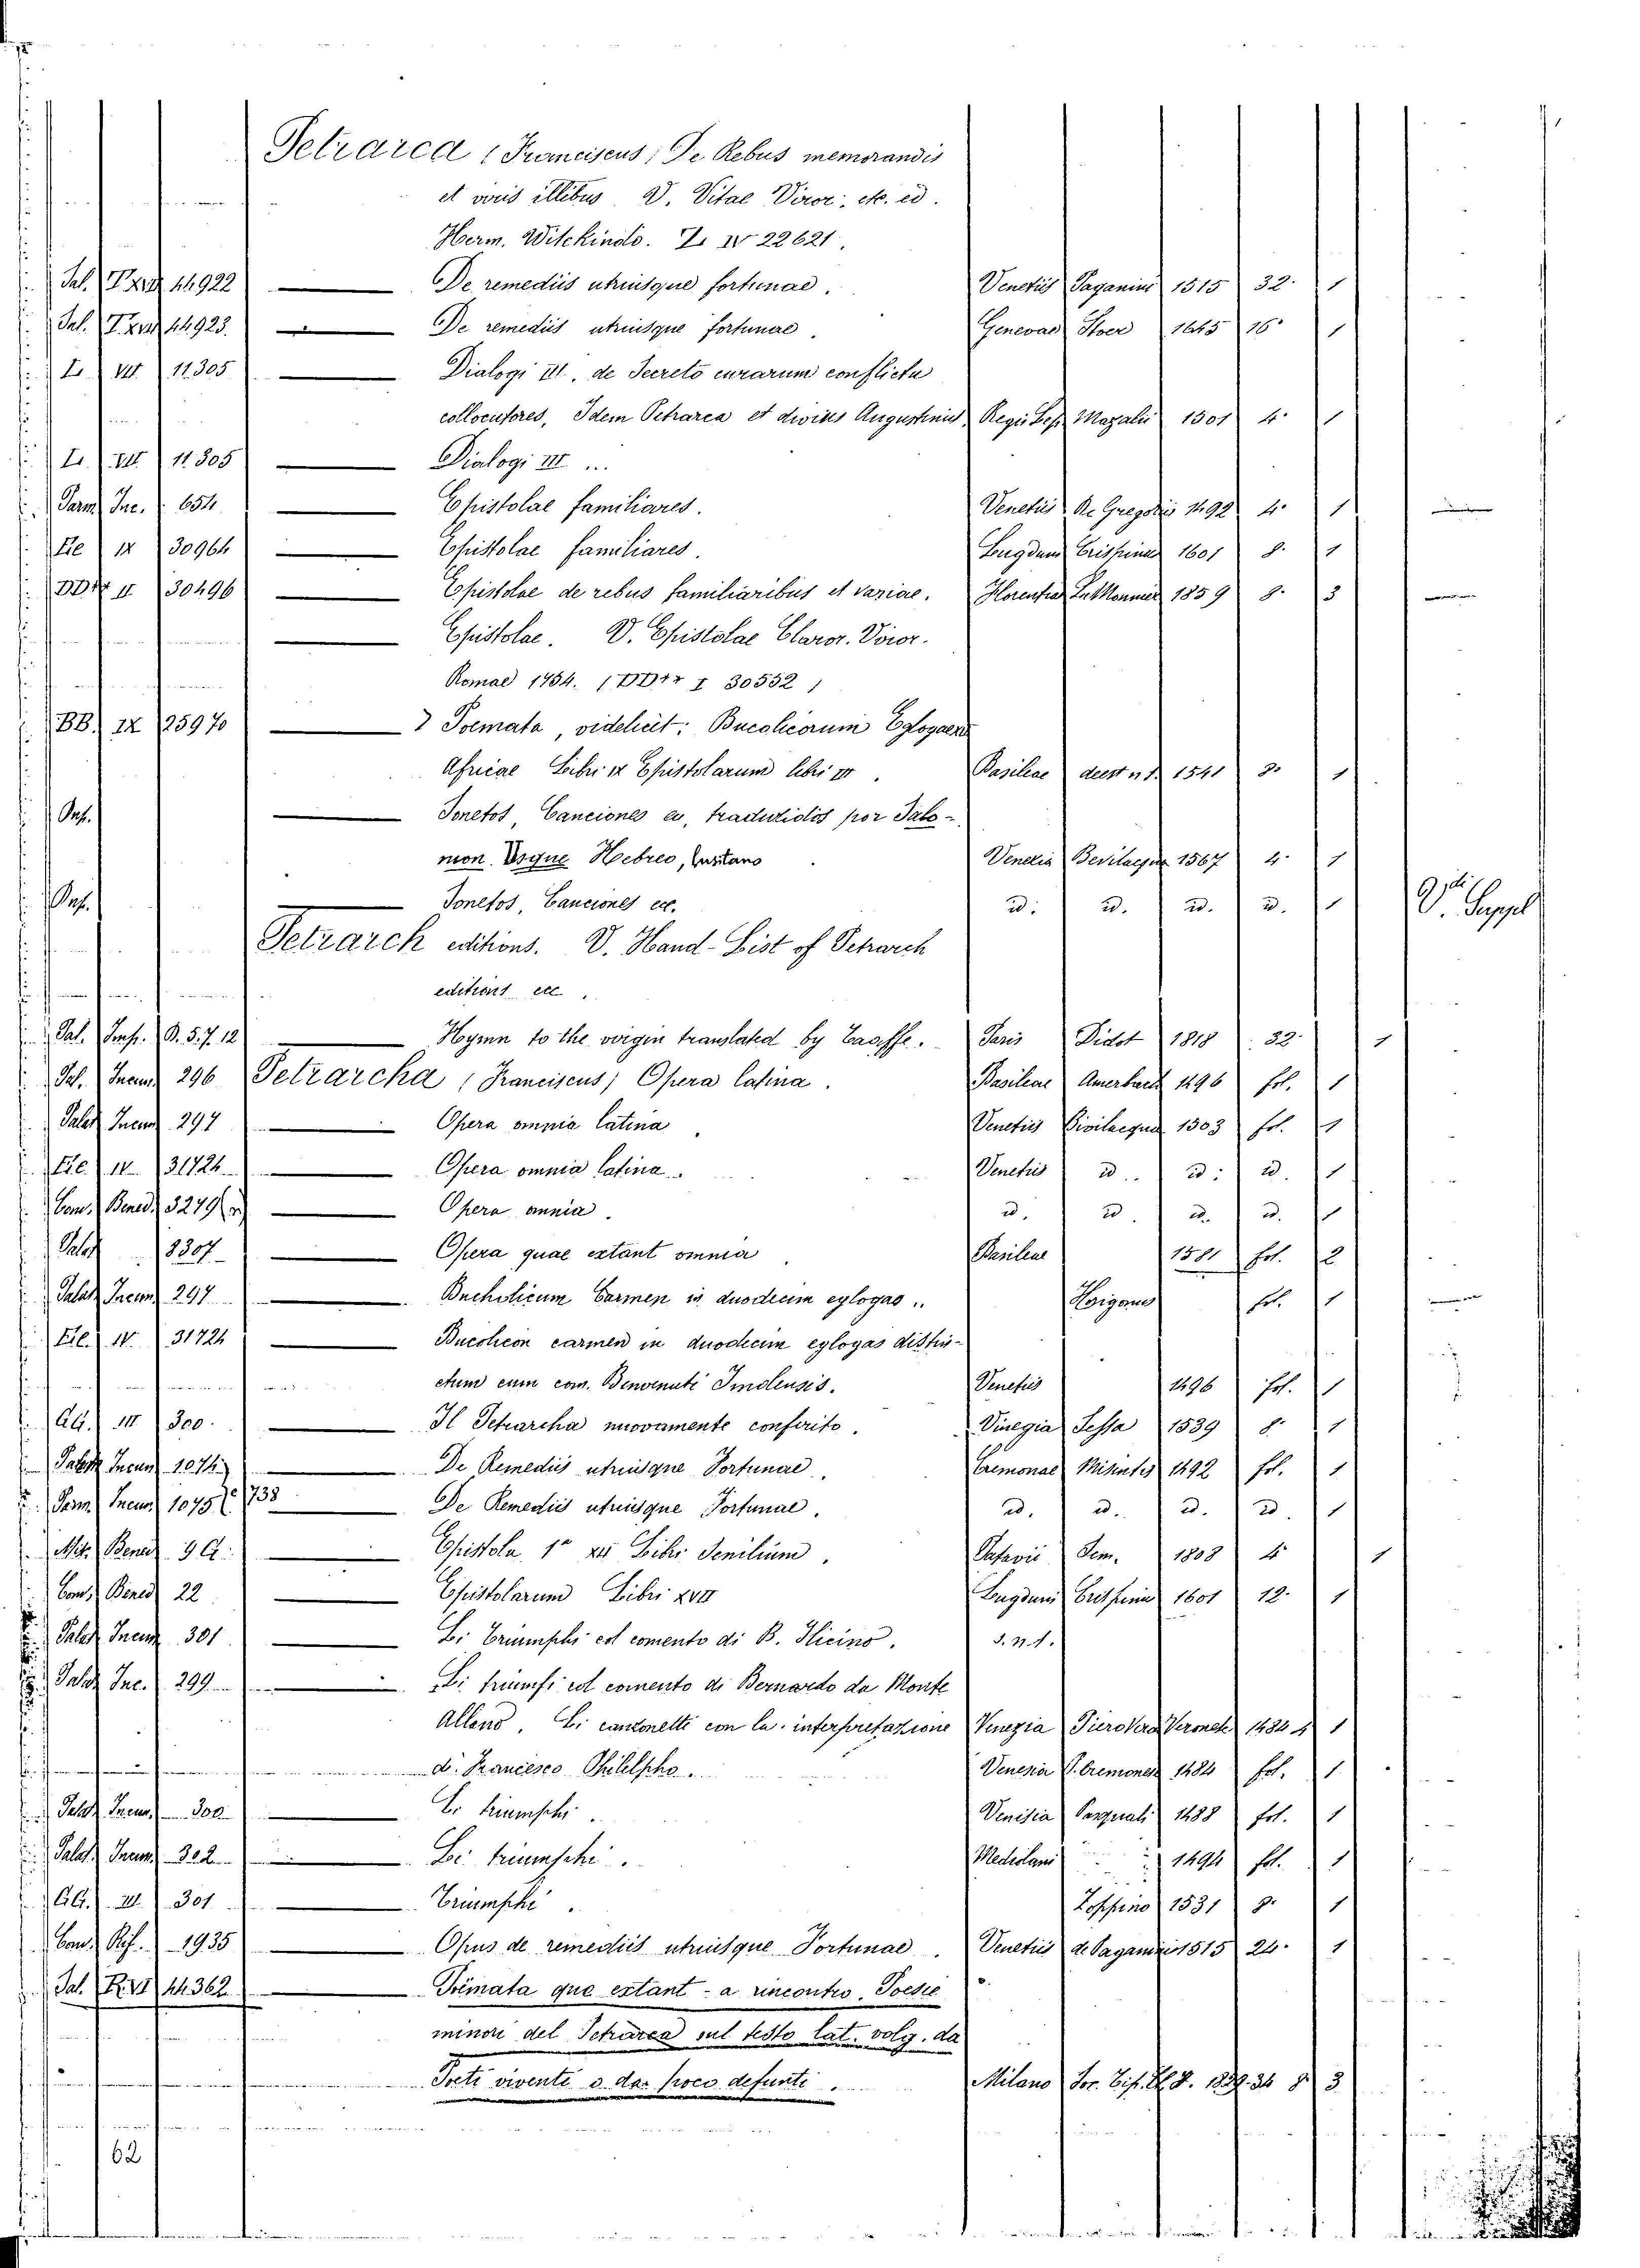 Petrarca (Franciscus) De Rebus memorandis
et viris illibus V. Vitae Viror. etc. ed.
Herm. Witekindo. Z. IV 22621.
Sal. 44922 — De remediis utriusque fortunae. Venetiis Paganini 1515 32. 1
Sal. 44923. — De remediis utriusque fortunae. Genevae Stoer 1645 16. 1
L. VII 11305 — Dialogi III, de Secreto curarum conflictu
collocutores, Idem Petrarca et divius Augustinus. Regii Lep. Mazalis 1501 4. 1
L. VII 11305 — Dialogi III ...
Parm. Inc. 654 — Epistolae familiares. Venetiis De Gregoriis 1492 4. 1
EIE IX 30964 — Epistolae familiares. Lugduni Crispinus 1601 8. 1
DD** II 30496 — Epistolae de rebus familiaribus et variae. Florentiae Le Monnier 1859 8. 3
— Epistolae. V. Epistolae Claror. Viror.
Romae 1754. (DD** I 30532)
BB. IX 25970 — Poemata, videlicit: Bucolicorum Eglogaera
Africae Libri IX Epistolarum libri III. Basileae deest n.t. 1541 8. 1
Ant. — Sonetos, Canciones ec, traduzidos por Salo-
mon Usque Hebreo, Lusitano. Venezia Bevilacqua 1567 4. 1
Ant. — Sonetos, Canciones ec. id. id. id. id. 1 V. Suppl
Petrarch editions. V. Hand-List of Petrarch
editions etc.
Pal. Imp. B. 5. 7. 12 — Hymn to the virgin translated by Taaffe. Paris Didot 1818 32. 1
Pal. Incun. 296 Petrarcha (Franciscus) Opera latina. Basileae Amerbach 1496 fol. 1
Palat. Incun. 297 — Opera omnia latina. Venetiis Bivilacqua 1503 fol. 1
EIE. IV 31724 — Opera omnia latina. Venetiis id. id. id. 1
Com. Bened. 3279 — Opera omnia. id. id. id. id. 1
Palat. 8307 — Opera quae extant omnia Basileae 1581 fol. 2
Palat. Incun. 297 — Bucholicum Carmen in duodecim eglogas.. fol. 1
EIE. IV. 31724 — Bucolicon carmen in duodecim eglogas distin-
ctum cum com. Benvenuti Imolensis. Venetiis 1496 fol. 1
AG. III 300. — Il Petrarcha nuovamente conferito. Vinegia Sessa 1539 8. 1
Palat. Incun. 1074 — De Remediis utriusque Fortunae. Cremonae Misintis 1492 fol. 1
Parm. Incun. 1075 738 — De Remediis utriusque Fortunae. id. id. id. id. 1
Mit. Bened. 9 G. — Epistola 1a XII Libri Senilium. Patavii Sem. 1808 4. 1
Com. Bened. 22 — Epistolarum Libri XVII Lugduni Crispini 1601 12. 1
Palat. Incun. 301 — Li Triumphi col comento di B. Ilicino. s. n. t.
Palat. Inc. 299 — Li triumfi col comento di Bernardo da Monte
Allano. Li canzonetti con la interpretazione Venezia Piero Veronese 1484 4 1
di Francesco Philelpho. Venezia P. Cremonese 1484 fol. 1
Palat. Incun. 300 — Li triumphi. Venisia Pasquali 1488 fol. 1
Palat. Incun. 302 — Li triumphi. Mediolani 1494 fol. 1
AG. III. 301 — Triumphi. Zoppino 1531 8. 1
Com. Ref. 1935 — Opus de remediis utriusque Fortunae. Venetiis de Paganinis 1515 24. 1
Sal. 44362 — Poemata que extant - a rincontro. Poesie
minori del Petrarca sul testo lat. volg. da
Poeti viventi o da poco defunti. Milano Soc. Tip. Cl. It. 1829.34 8 3
62